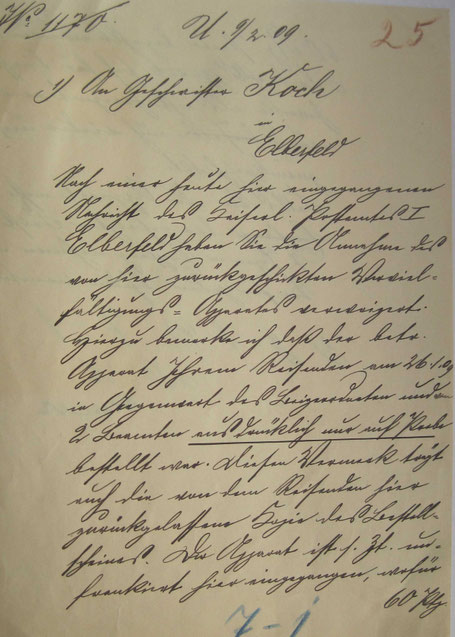 No 1176.
U. 9/2. 09.
25
1) An Geschwister Koch
in
Elberfeld
Nach einer heute hier eingegangenen
Nachricht des Kaiserl. Postamtes I
Elberfeld haben Sie die Annahme des
von hier zurückgeschickten Verviel-
fältigungs=Apparates verweigert.
Hierzu bemerke ich daß der betr.
Apparat Ihrem Reisenden am 26.1.09
in Gegenwart des Beigeordneten und
2 Beamten ausdrücklich nur auf Probe
bestellt war. Diesen Vermerk trägt
auch die von dem Reisenden hier
zurückgelassene Kopie des Bestell-
scheines. Der Apparat ist s. Zt. un-
frankiert hier eingegangen, wofür
60 Pfg
7-1